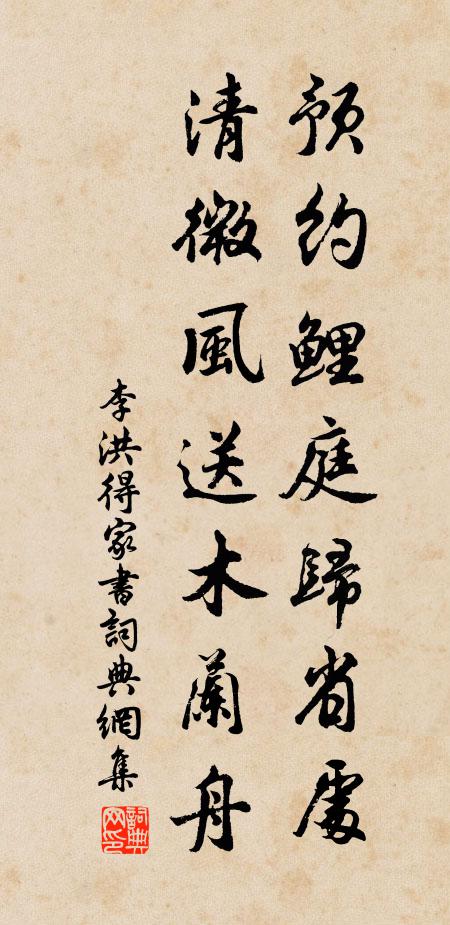 預約鯉庭歸省處
清微風送木蘭舟
李洪得家書詞典網集
詞典
网印